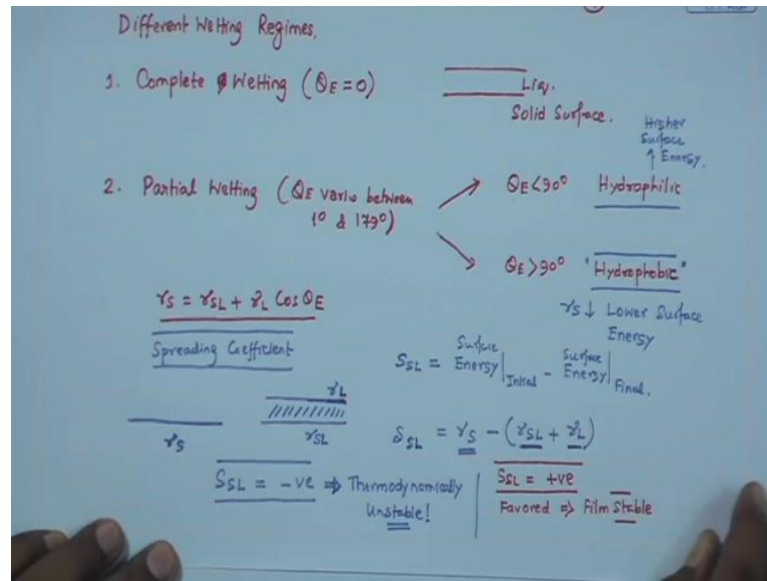 Different Wetting Regimes.
1. Complete Wetting (θE = 0)
Liq.
Solid Surface.
Higher
Surface
↑ Energy.
2. Partial Wetting (θE varies between
1° & 179°)
θE < 90° Hydrophilic
θE > 90° "Hydrophobic"
γS ↓ Lower Surface
Energy
γS = γSL + γL Cos θE
Spreading Coefficient
SSL = Surface Energy|Initial - Surface Energy|Final.
γL
γS
γSL
SSL = γS - (γSL + γL)
SSL = -ve ⇒ Thermodynamically
Unstable!
SSL = +ve
Favored ⇒ Film Stable